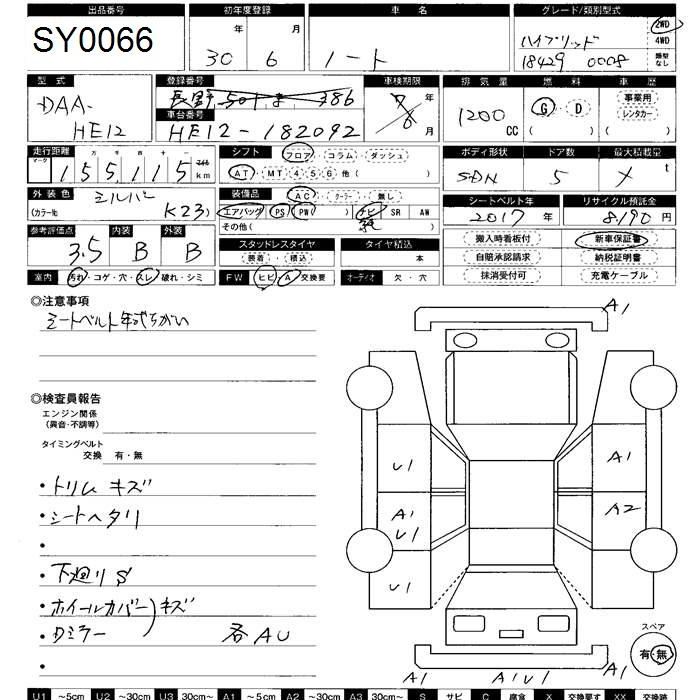 出品番号 初年度登録 車名 グレード/類別型式
SY0066 30年 6月 ノート ハイブリッド 18429 0008 2WD 4WD 類型なし
型式 登録番号 車検期限 排気量 燃料 車歴
DAA-HE12 長野 501 ま 386 年 月 1200cc G・D ( ) 事業用 レンタカー ( )
車台番号
HE12-182092
走行距離 シフト フロア・コラム・ダッシュ ボディ形状 ドア数 最大積載量
マーク 十万千百十一
155,115 マイル km AT・MT 4 5 6 他( ) SDN 5 X t
外装色 シルバー 装備品 AC・クーラー・無し シートベルト年 リサイクル預託金
(カラーNo. K23) エアバッグ PS PW ( ) ナビ SR AW 2017年 8,190円
その他( )
参考評価点 内装 外装 搬入時看板付 新車保証書
3.5 B B スタッドレスタイヤ タイヤ積込 自賠承認請求 納税証明書
(装着・積込) 本 抹消受付可 充電ケーブル
室内 汚れ・コゲ・穴・スレ・破れ・シミ FW ヒビ・A・交換要 オーディオ 欠・穴
◎注意事項
シートベルト年式ちがい
◎検査員報告
エンジン関係
(異音・不調等)
タイミングベルト
交換 有・無
・トリム キズ
・シートヘタリ
・
・下廻りS
・ホイールカバー)キズ
・Dミラー 各AU
・
A1
U1 A1
A1 U1 A2
U1
A1 A1U1 A1
スペア
有・無
U1 ~5cm U2 ~30cm U3 30cm~ A1 ~5cm A2 ~30cm A3 30cm~ S サビ C 腐食 X 交換要す XX 交換跡